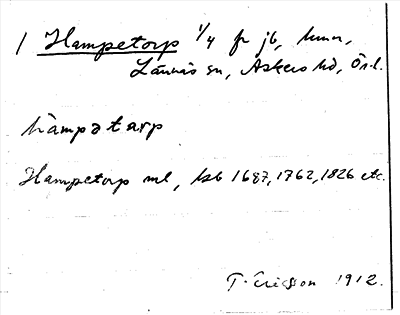 1 Hampetorp 1/4 fr jb, hmn,
Lännäs sn, Askers hd, Ör.l.
hàmpətarp
Hampetorp ml, hsb 1687, 1762, 1826 etc.
T. Ericsson 1912.